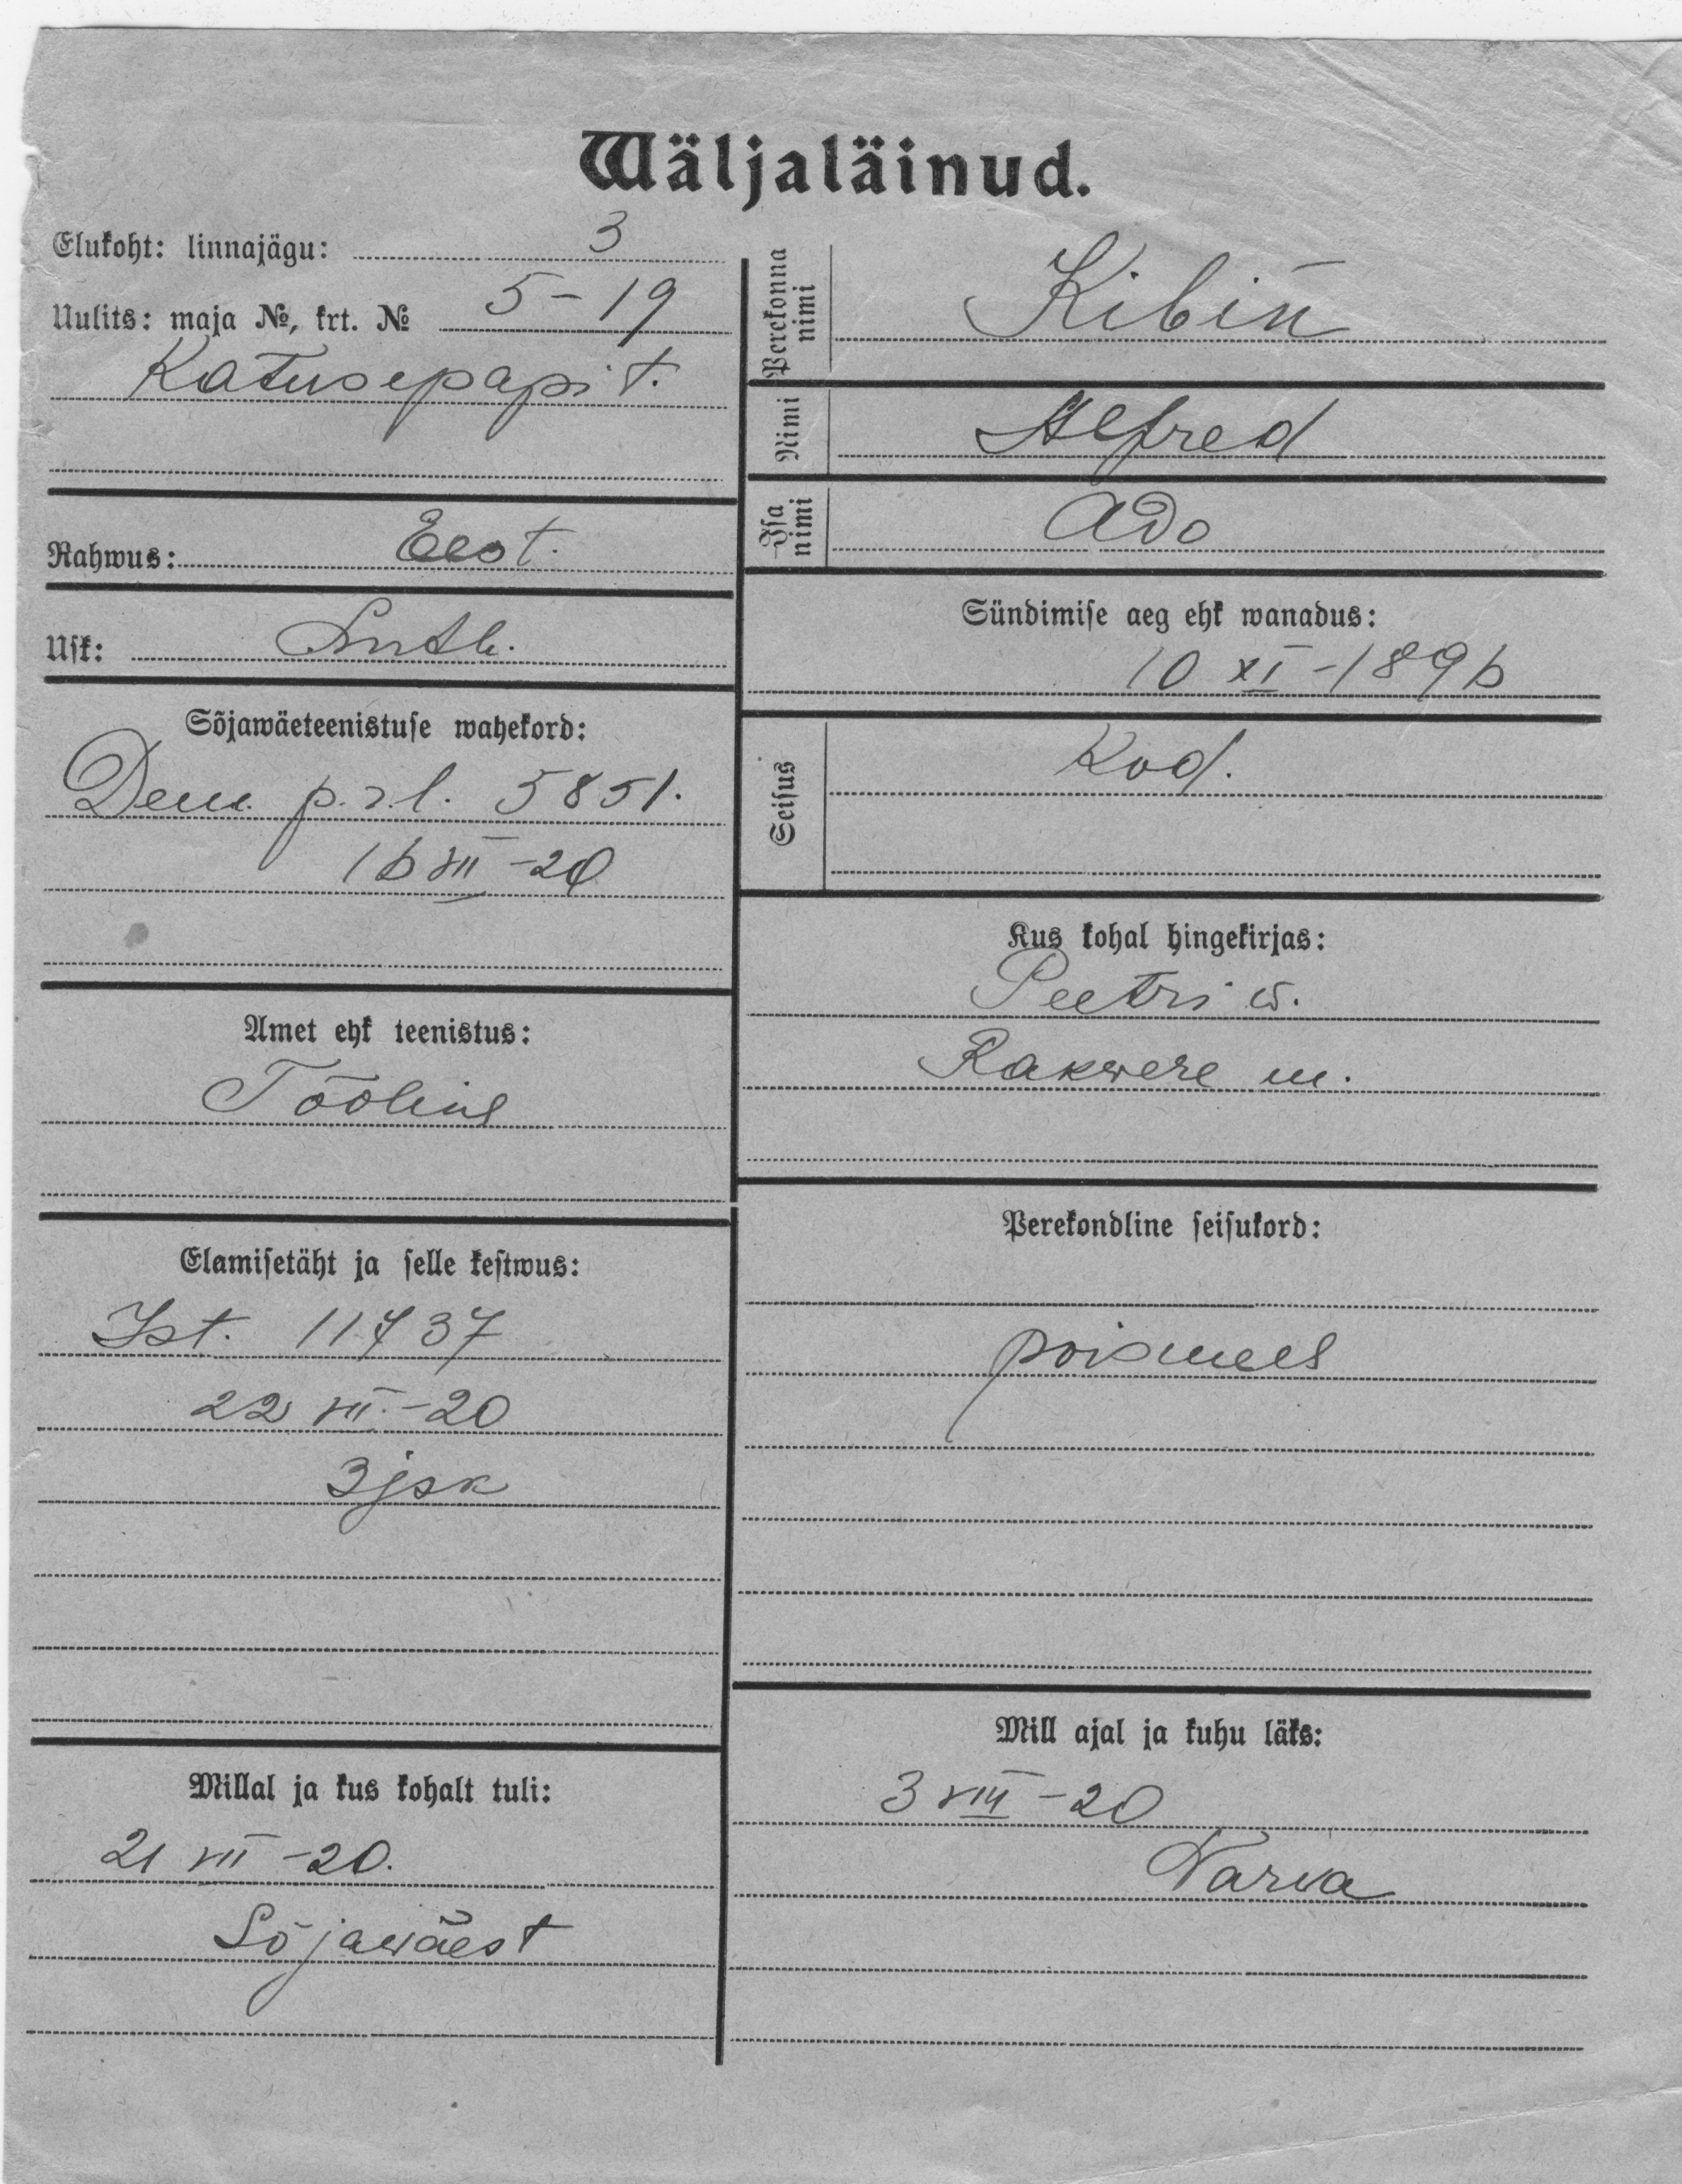 Wäljaläinud.
Elukoht: linnajägu: 3
Uulits: maja №, krt. № 5-19
Katusepapi t.
Rahwus: Eest.
Usk: Luth.
Sõjawäeteenistuse wahekord:
Dem. p.r.l. 5851.
16 VII -20
Amet ehk teenistus:
Tööline
Elamisetäht ja selle kestwus:
Ist. 11737
22 VII -20
3 jsk
Millal ja kus kohalt tuli:
21 VII -20.
Sõjawäest
Perekonna nimi Kibin
Nimi Alfred
Isa nimi Ado
Sündimise aeg ehk wanadus:
10 XI -1896
Seisus Kod.
Kus kohal hingekirjas:
Peetri w.
Rakwere m.
Perekondline seisukord:
poismees
Mill ajal ja kuhu läks:
3 VIII -20
Narva